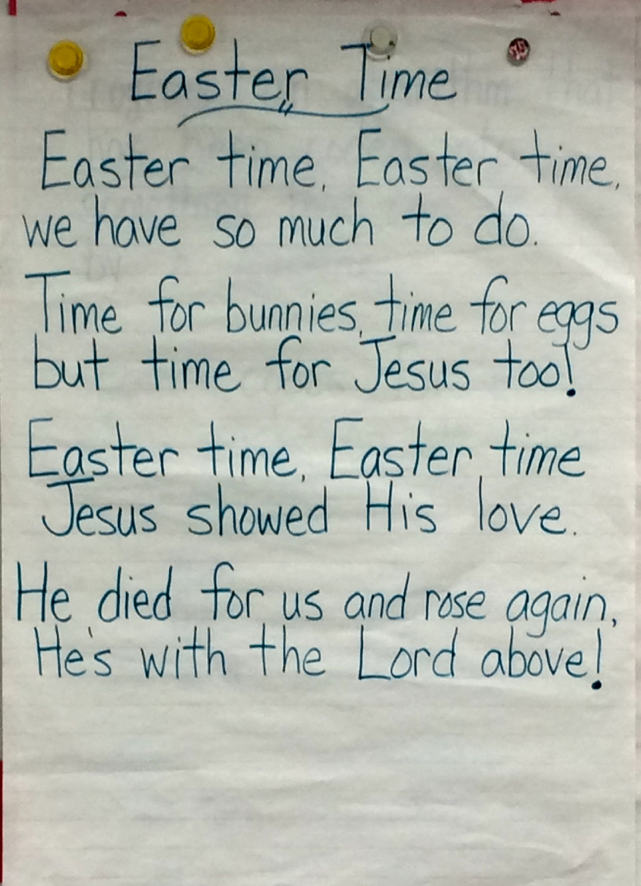 Easter Time
Easter time, Easter time,
we have so much to do.
Time for bunnies, time for eggs
but time for Jesus too!
Easter time, Easter time
Jesus showed His love.
He died for us and rose again,
He's with the Lord above!